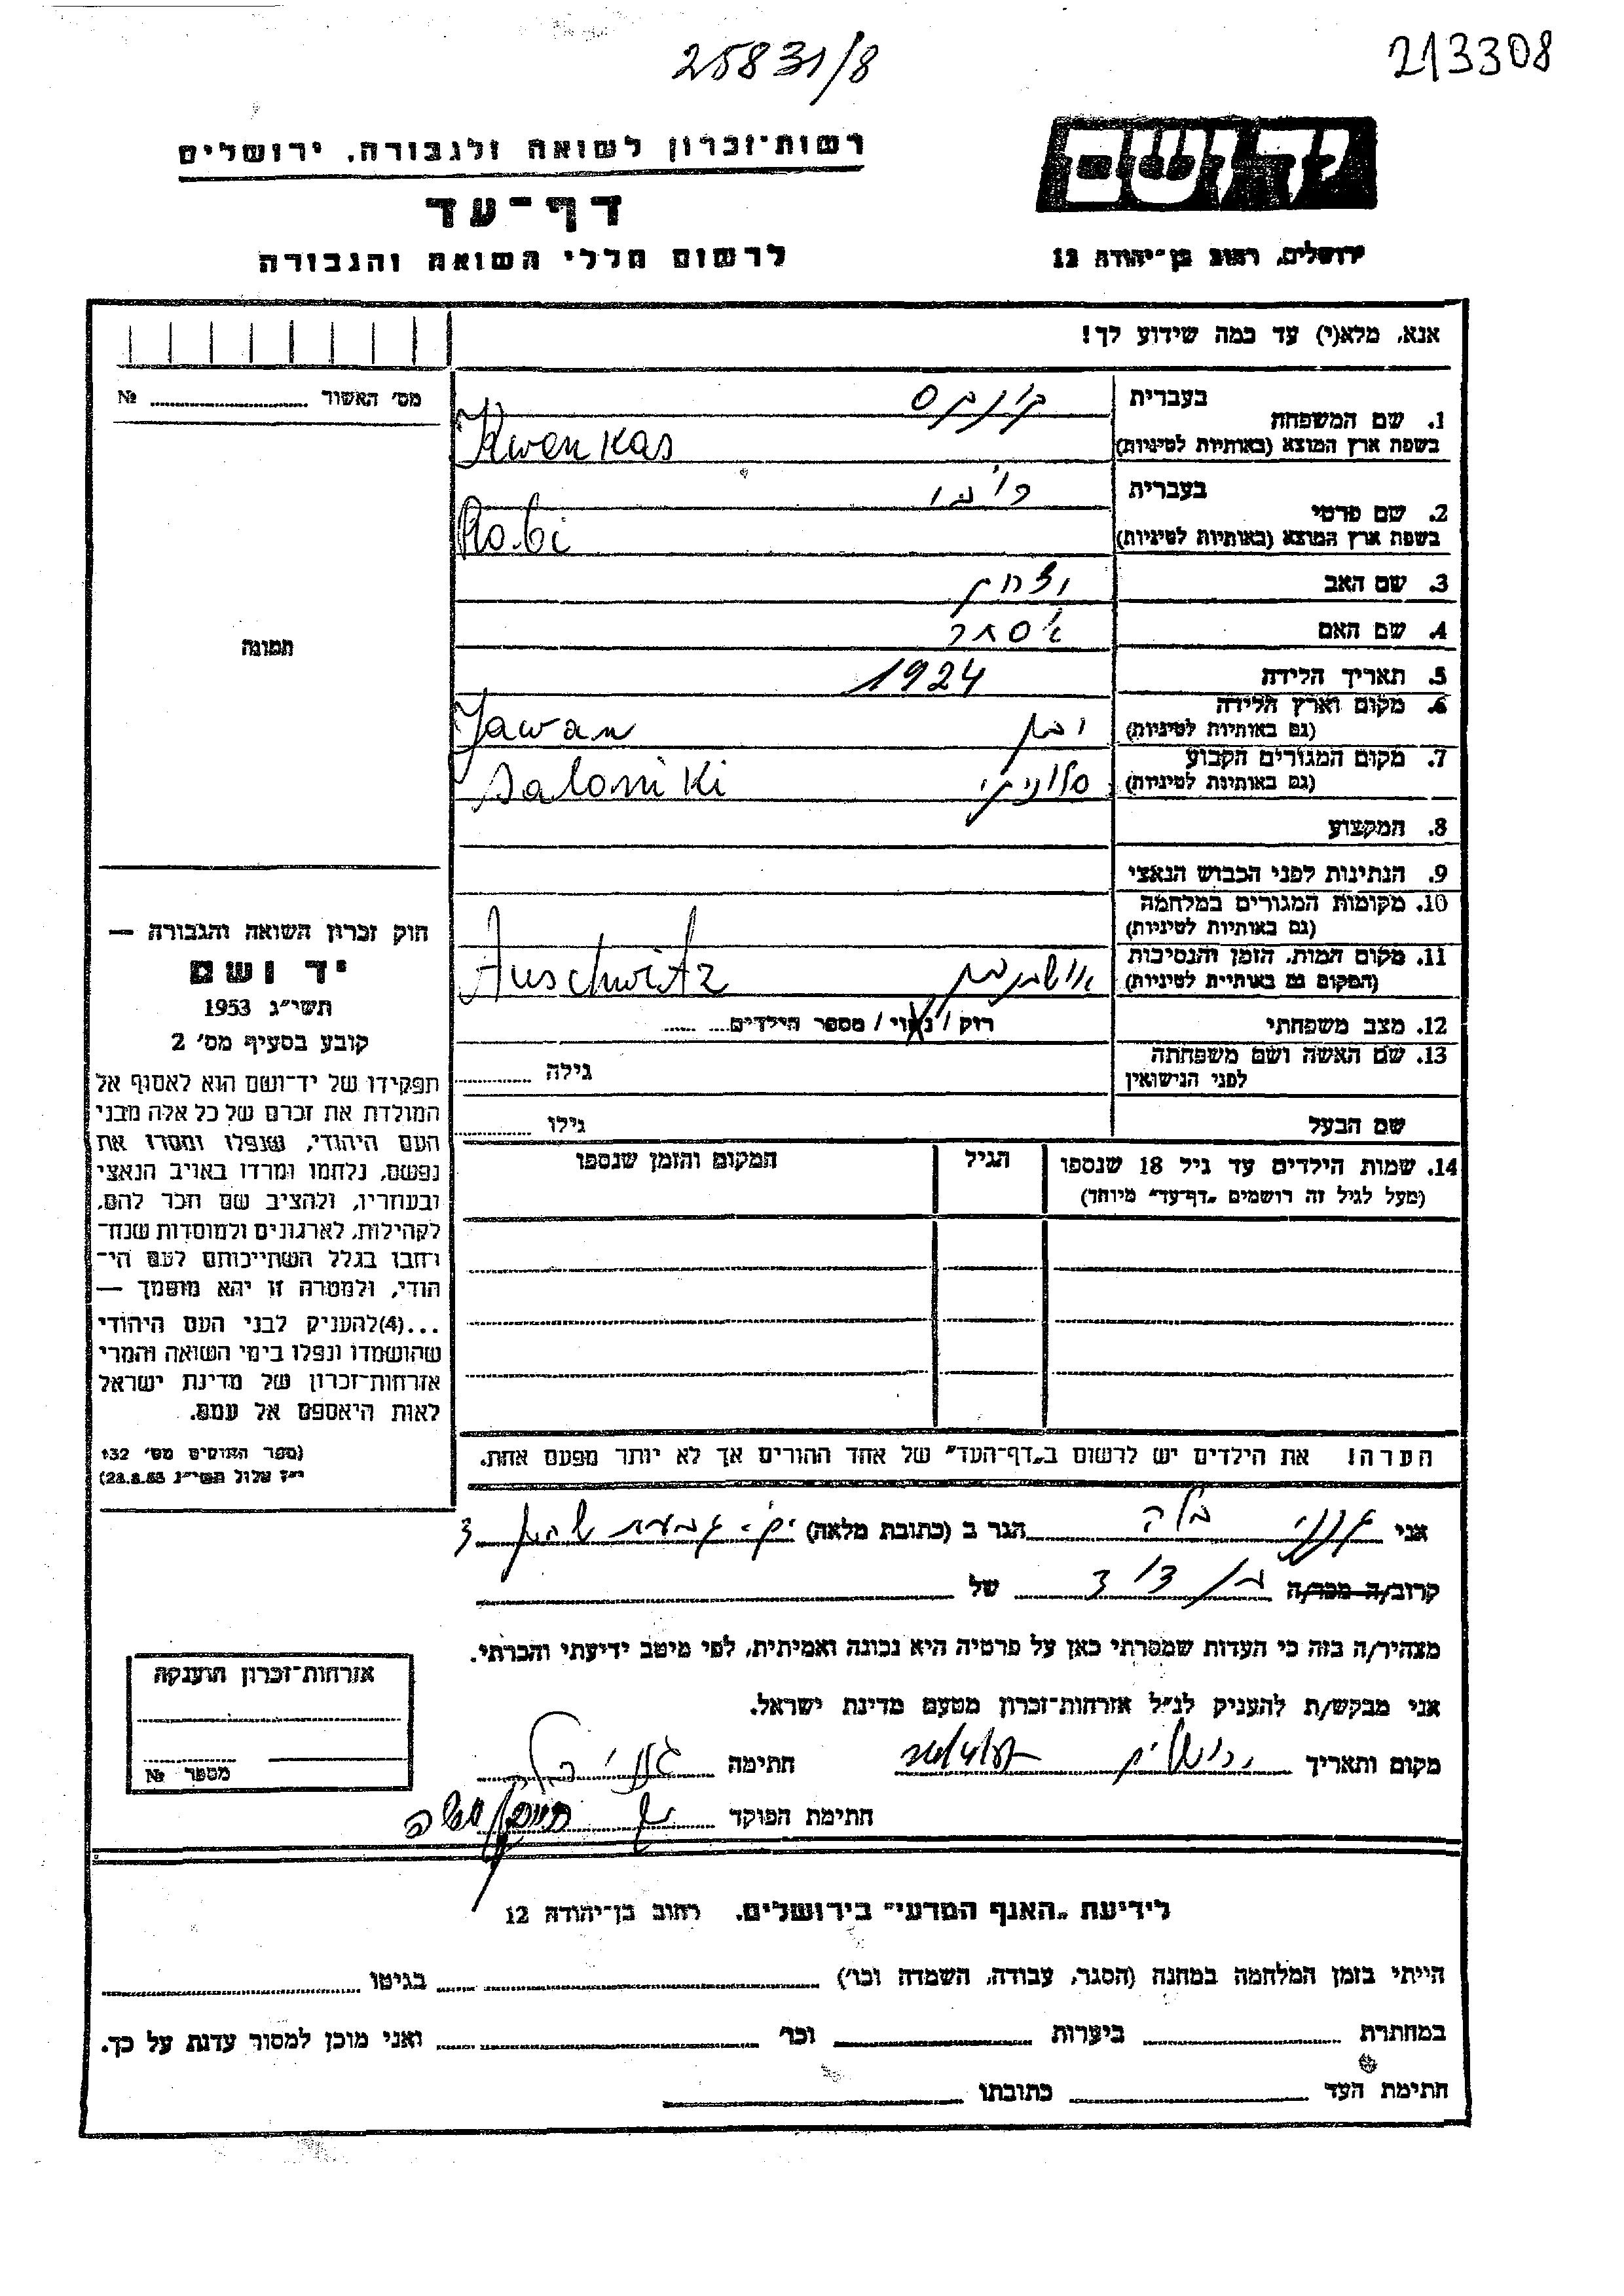 25831/8
213308
רשות־זכרון לשואה ולגבורה, ירושלים
יד ושם
דף־עד
לרשום חללי השואה והגבורה
ירושלים, רחוב בן־יהודה 12
אנא, מלא(י) עד כמה שידוע לך!
מס׳ האשור № 
1. שם המשפחה בעברית
בשפת ארץ המוצא (באותיות לטיניות) Kwenkas
2. שם פרטי בעברית
בשפת ארץ המוצא (באותיות לטיניות) Robi
3. שם האב יצחק
4. שם האם אסתר
5. תאריך הלידה 1924
6. מקום וארץ הלידה
(גם באותיות לטיניות) יון Jawan
7. מקום המגורים הקבוע
(גם באותיות לטיניות) סלוניקי Saloniki
8. המקצוע
9. הנתינות לפני הכבוש הנאצי
10. מקומות המגורים במלחמה
(גם באותיות לטיניות)
11. מקום המות, הזמן והנסיבות
(המקום גם באותיות לטיניות) Auschwitz
12. מצב משפחתי רווק / נשוי / מספר הילדים
13. שם האשה ושם משפחתה
לפני הנישואין גילה
שם הבעל גילו
14. שמות הילדים עד גיל 18 שנספו הגיל המקום והזמן שנספו
(מעל לגיל זה רושמים „דף־עד” מיוחד)
הערה! את הילדים יש לרשום ב„דף־העד” של אחד ההורים אך לא יותר מפעם אחת.
תמונה
חוק זכרון השואה והגבורה —
יד ושם
תשי״ג 1953
קובע בסעיף מס׳ 2
תפקידו של יד־ושם הוא לאסוף אל
המולדת את זכרם של כל אלה מבני
העם היהודי, שנפלו ומסרו את
נפשם, נלחמו ומרדו באויב הנאצי
ובעוזריו, ולהציב שם וזכר להם,
לקהילות, לארגונים ולמוסדות שנח־
רבו בגלל השתייכותם לעם הי־
הודי, ולמטרה זו יהא מוסמך —
...(4)להעניק לבני העם היהודי
שהושמדו ונפלו בימי השואה והמרי
אזרחות־זכרון של מדינת ישראל
לאות היאספם אל עמם.
(ספר החוקים מס׳ 132
י״ז אלול תשי״ג 28.8.53)
אני בלה הגר ב (כתובת מלאה) גבעת 3
קרוב/ה מכר/ה של
מצהיר/ה בזה כי העדות שמסרתי כאן על פרטיה היא נכונה ואמיתית, לפי מיטב ידיעתי והכרתי.
אני מבקש/ת להעניק לנ״ל אזרחות־זכרון מטעם מדינת ישראל.
מקום ותאריך ירושלים חתימה
חתימת הפוקד
אזרחות־זכרון הוענקה
מספר №
לידיעת „האגף המדעי” בירושלים. רחוב בן־יהודה 12
הייתי בזמן המלחמה במחנה (הסגר, עבודה, השמדה וכו׳) בגיטו
במחתרת ביערות וכו׳ ואני מוכן למסור עדות על כך.
חתימת העד כתובתו